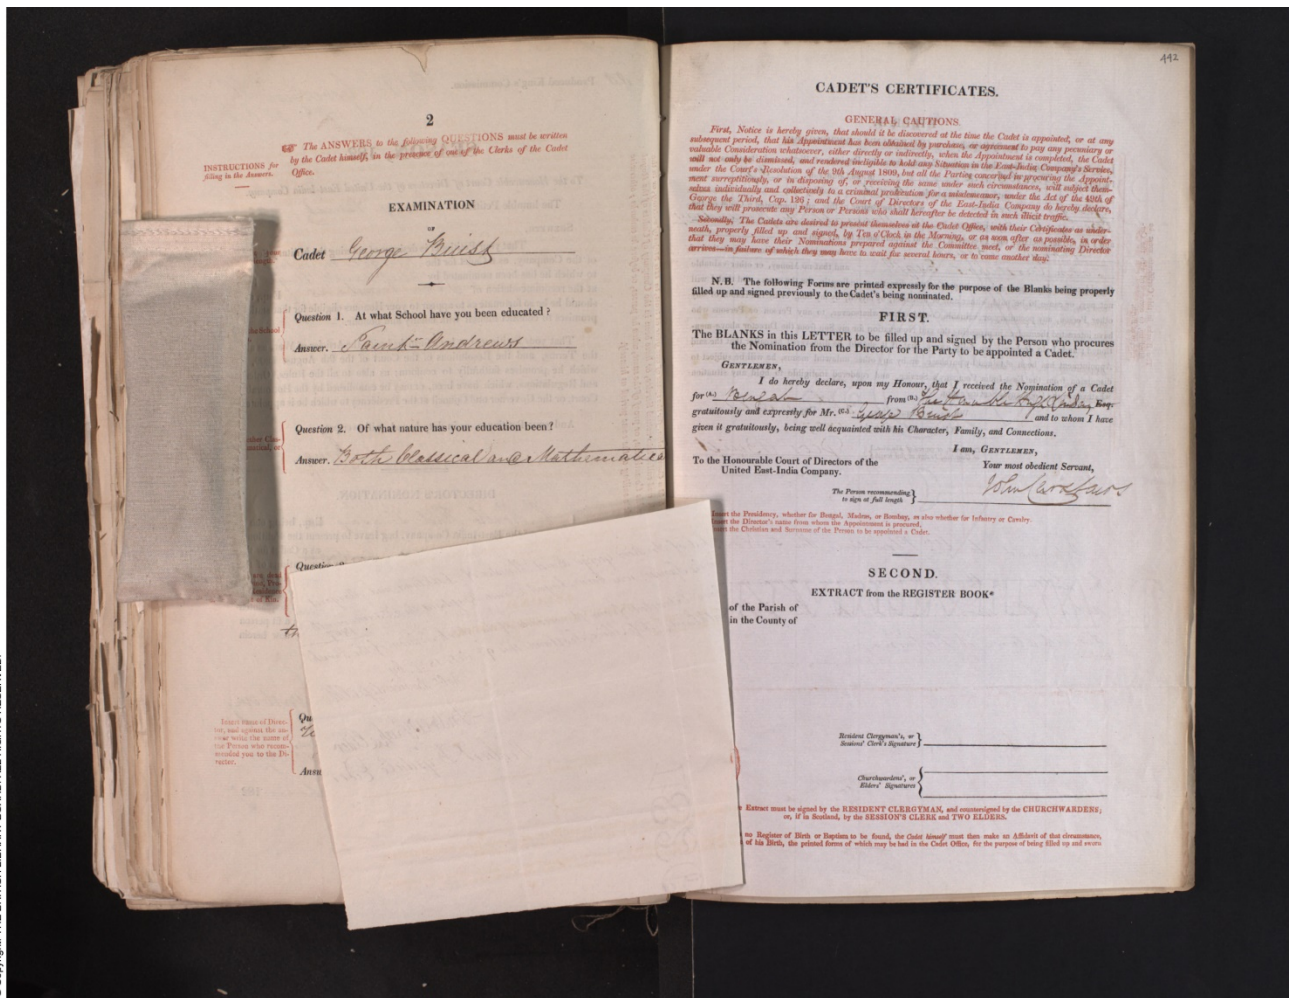 2
The ANSWERS to the following QUESTIONS must be written
by the Cadet himself, in the presence of one of the Clerks of the Cadet
Office.
INSTRUCTIONS for
filling in the Answers.
EXAMINATION
OF
Cadet George Buist
Question 1. At what School have you been educated?
Answer. Saint Andrews
Question 2. Of what nature has your education been?
Answer. Both Classical and Mathematical
Question
Insert name of Direc-
tor, and against the an-
swer write the name of
the Person who recom-
mended you to the Di-
rector.
Qu
Answ
442
CADET'S CERTIFICATES.
GENERAL CAUTIONS.
First, Notice is hereby given, that should it be discovered at the time the Cadet is appointed, or at any
subsequent period, that his Appointment has been obtained by purchase, or agreement to pay any pecuniary or
valuable Consideration whatsoever, either directly or indirectly, when the Appointment is completed, the Cadet
will not only be dismissed, and rendered ineligible to hold any Situation in the East-India Company's Service,
under the Court's Resolution of the 9th August 1809, but all the Parties concerned in procuring the Appoint-
ment surreptitiously, or in disposing of, or receiving the same under such circumstances, will subject them-
selves individually and collectively to a criminal prosecution for a misdemeanor, under the Act of the 49th of
George the Third, Cap. 126; and the Court of Directors of the East-India Company do hereby declare,
that they will prosecute any Person or Persons who shall hereafter be detected in such illicit traffic.
Secondly, The Cadets are desired to present themselves at the Cadet Office, with their Certificates as under-
neath, properly filled up and signed, by Ten o'Clock in the Morning, or as soon after as possible, in order
that they may have their Nominations prepared against the Committee meet, or the nominating Director
arrives—in failure of which they may have to wait for several hours, or to come another day.
N.B. The following Forms are printed expressly for the purpose of the Blanks being properly
filled up and signed previously to the Cadet's being nominated.
FIRST.
The BLANKS in this LETTER to be filled up and signed by the Person who procures
the Nomination from the Director for the Party to be appointed a Cadet.
GENTLEMEN,
I do hereby declare, upon my Honour, that I received the Nomination of a Cadet
for (A.) Bengal from (B.) The Honorable Hugh Lindsay Esq.
gratuitously and expressly for Mr. (C.) George Buist and to whom I have
given it gratuitously, being well acquainted with his Character, Family, and Connections.
I am, GENTLEMEN,
To the Honourable Court of Directors of the
United East-India Company.
Your most obedient Servant,
The Person recommending
to sign at full length
John
Insert the Presidency, whether for Bengal, Madras, or Bombay, or also whether for Infantry or Cavalry.
Insert the Director's name from whom the Appointment is procured.
Insert the Christian and Surname of the Person to be appointed a Cadet.
SECOND.
EXTRACT from the REGISTER BOOK*
of the Parish of
in the County of
Resident Clergyman's, or
Sessions' Clerk's Signature
Churchwardens', or
Elders' Signatures
Extract must be signed by the RESIDENT CLERGYMAN, and countersigned by the CHURCHWARDENS;
or, if in Scotland, by the SESSION'S CLERK and TWO ELDERS.
no Register of Birth or Baptism to be found, the Cadet himself must then make an Affidavit of that circumstance,
of his Birth, the printed forms of which may be had in the Cadet Office, for the purpose of being filled up and sworn